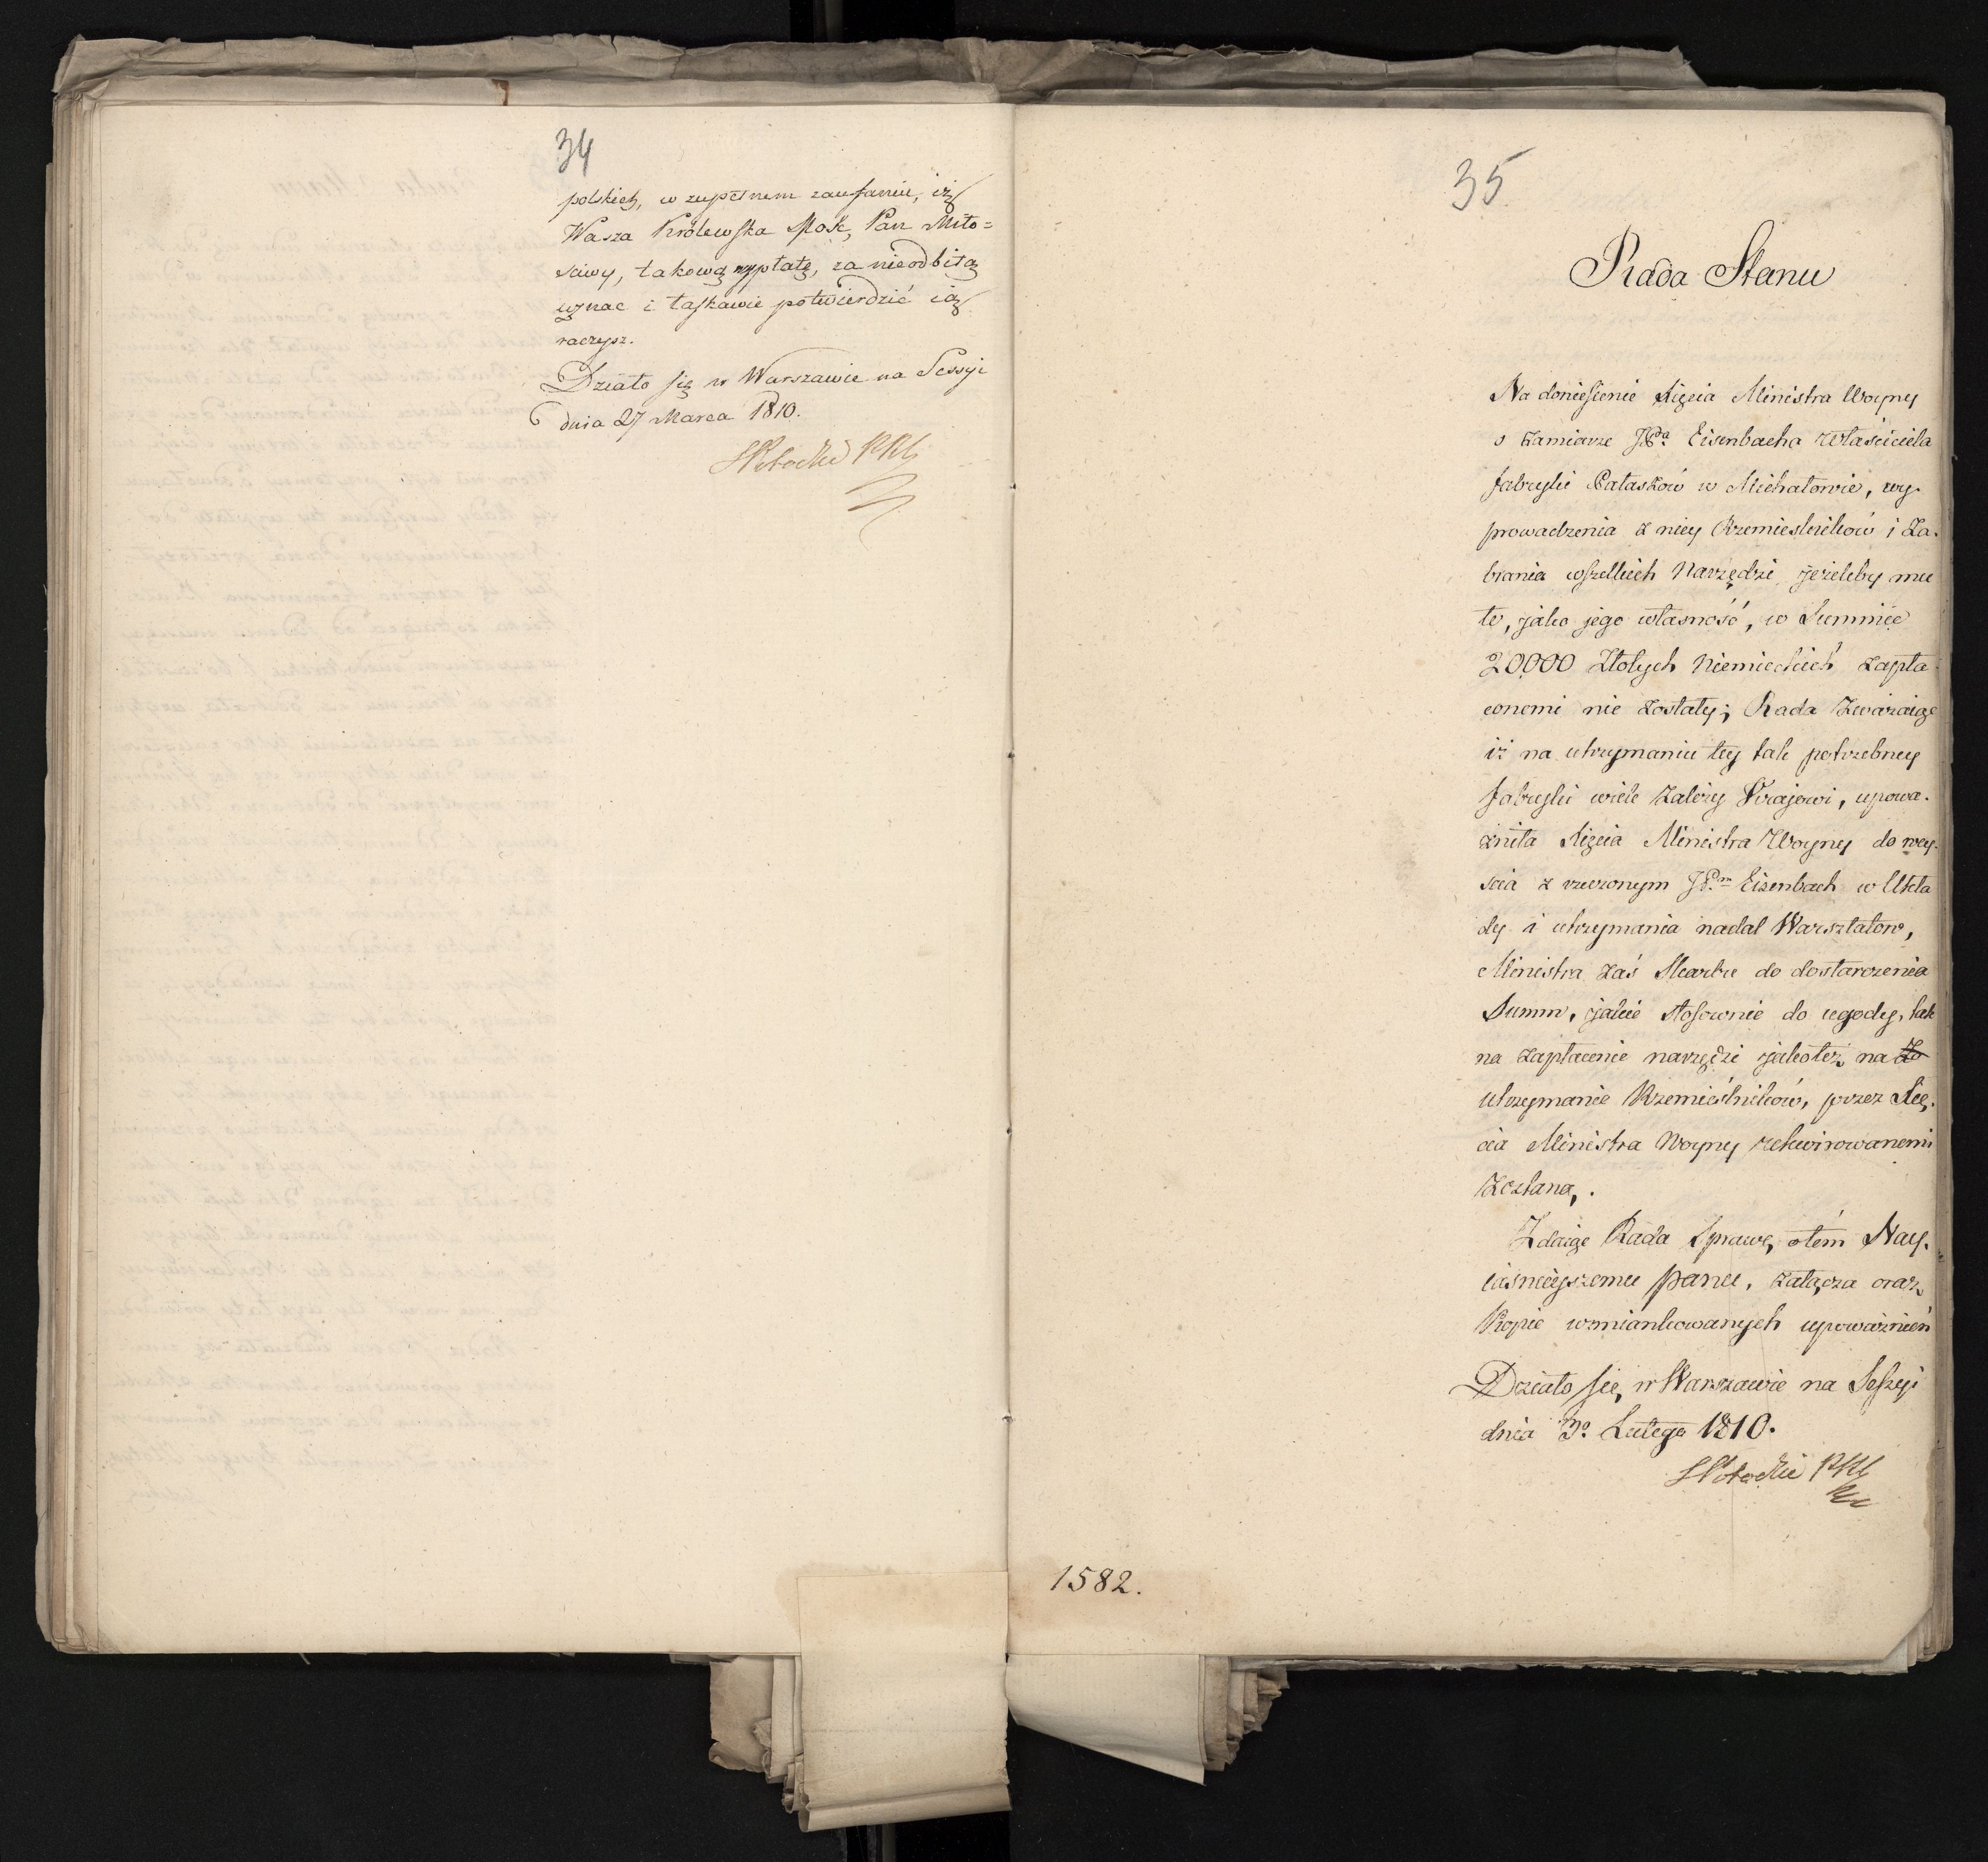 34
polskich, w zupełnem zaufaniu, iż
Wasza Królewska Mość, Pan Miło=
ściwy, takową wypłatę, za nieodbitą
uznać i łaskawie potwierdzić ią
raczysz.
Działo się w Warszawie na Sessyi
dnia 27 Marca 1810.
SPotocki PRS
35
Rada Stanu
Na doniesienie Xięcia Ministra Woyny
o zamiarze JPa. Eisenbacha Właściciela
fabryki Pałaszów w Michałowie, wy-
prowadzenia z niey Rzemieślników i Za-
brania wszelkich Narzędzi jeżeliby mu
te, jako jego własność, w Summie
20000 Złotych Niemieckich zapła-
conemi nie zostały; Rada Zważaiąc
iż na utrzymaniu tey tak potrzebney
fabryki wiele zależy Krajowi, upowa-
żniła Xięcia Ministra Woyny do wey-
ścia z rzeczonym JPm Eisenbach w Ukła
dy i utrzymania nadal Warsztatow,
Ministra zaś Skarbu do dostarczenia
Summ, jakie stosownie do ugody, tak
na zapłacenie narzędzi jakoteż na
utrzymanie Rzemieślników, przez Xię-
cia Ministra Woyny rekwirowanemi
Zostaną.
Zdaiąc Rada Sprawę otém Nay-
iaśnieyszemu Panu, załącza oraz
Kopie wzmiankowanych upoważnień
Działo się w Warszawie na Sessyi
dnia 3o Lutego 1810.
SPotocki PRS
1582.